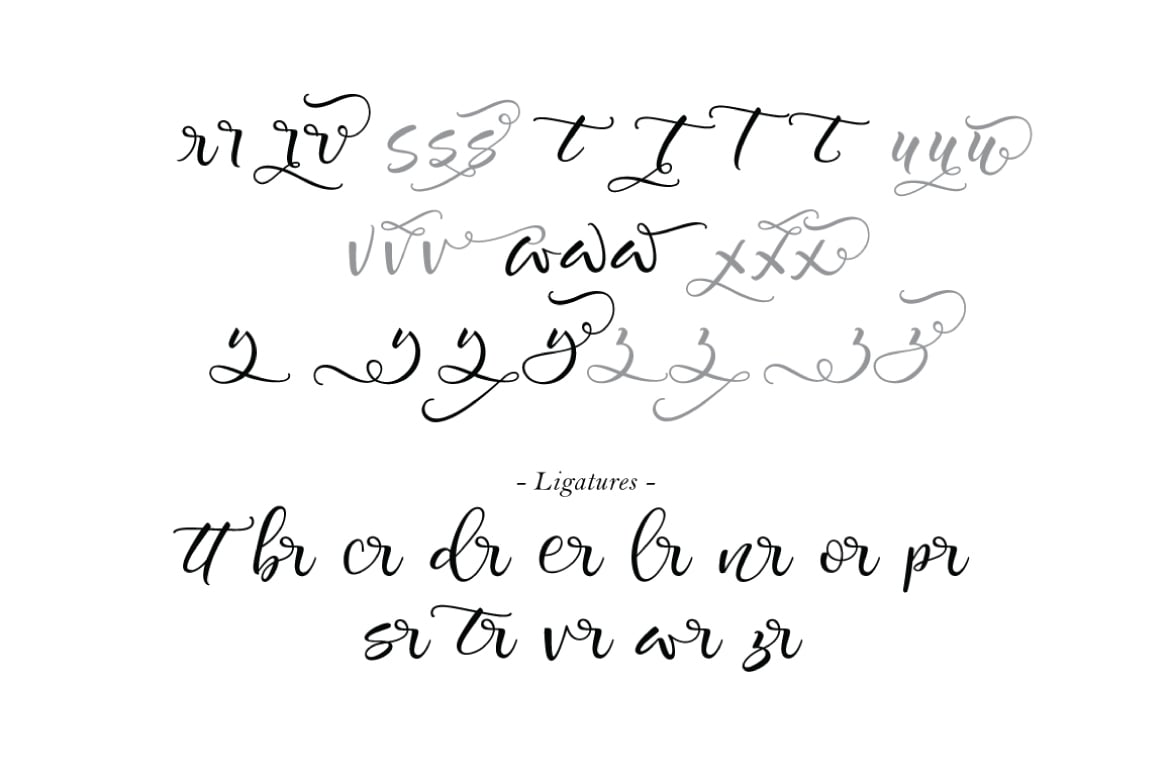 r r r r s s s t t t t u u u
v v v w w w x x x
y y y y z z z z
- Ligatures -
tt br cr dr er lr nr or pr
sr tr vr wr zr